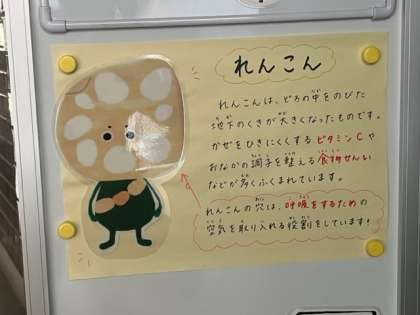 れんこん
れんこんは、どろの中をのびた
地下のくきが大きくなったものです。
かぜをひきにくくするビタミンCや
おなかの調子を整える食物せんい
などが多くふくまれています。
れんこんの穴は、呼吸をするための
空気を取り入れる役割をしています!